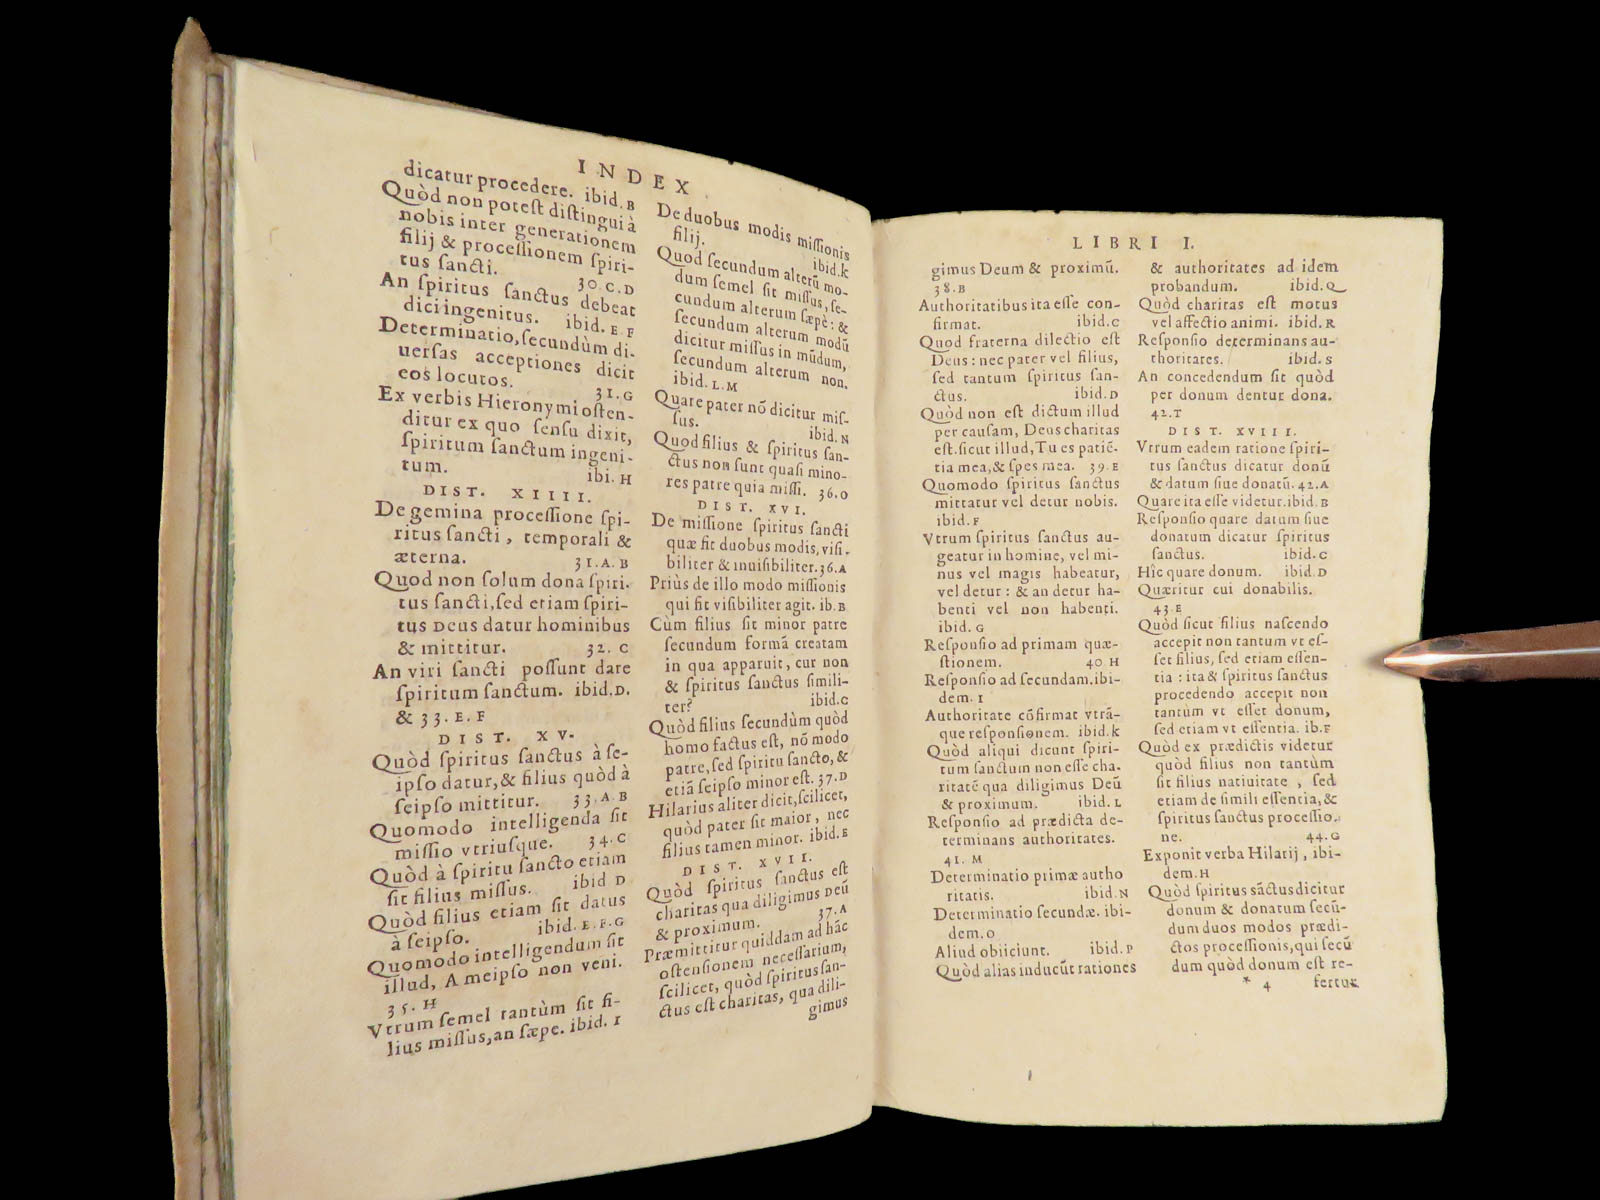 INDEX
dicatur procedere. ibid. B
Quòd non potest distingui à
nobis inter generationem
filij & processionem spiri-
tus sancti. 30. C. D
An spiritus sanctus debeat
dici ingenitus. ibid. E. F
Determinatio, secundùm di-
uersas acceptiones dicit
eos locutos. 31. G
Ex verbis Hieronymi osten-
ditur ex quo sensu dixit,
spiritum sanctum ingeni-
tum. ibi. H
DIST. XIIII.
De gemina processione spi-
ritus sancti, temporali &
æterna. 31. A. B
Quod non solum dona spiri-
tus sancti, sed etiam spiri-
tus Deus datur hominibus
& mittitur. 32. C
An viri sancti possunt dare
spiritum sanctum. ibid. D.
& 33. E. F
DIST. XV.
Quòd spiritus sanctus à se-
ipso datur, & filius quòd à
seipso mittitur. 33. A. B
Quomodo intelligenda sit
missio vtriusque. 34. C
Quòd à spiritu sancto etiam
sit filius missus. ibid D
Quòd filius etiam sit datus
à seipso. ibid. E. F. G
Quomodo intelligendum sit
illud, A meipso non veni.
35. H
Vtrum semel tantùm sit fi-
lius missus, an sæpe. ibid. I
De duobus modis missionis
filij. ibid. k
Quod secundum alterũ mo-
dum semel sit missus, se-
cundum alterum sæpè: &
secundum alterum modũ
dicitur missus in mũdum,
secundum alterum non.
ibid. L. M
Quare pater nõ dicitur mis-
sus. ibid. N
Quod filius & spiritus san-
ctus non sunt quasi mino-
res patre quia missi. 36. O
DIST. XVI.
De missione spiritus sancti
quæ fit duobus modis, visi-
biliter & inuisibiliter. 36. A
Priùs de illo modo missionis
qui fit visibiliter agit. ib. B
Cùm filius sit minor patre
secundum formã creatam
in qua apparuit, cur non
& spiritus sanctus simili-
ter? ibid. C
Quòd filius secundùm quòd
homo factus est, nõ modo
patre, sed spiritu sancto, &
etiã seipso minor est. 37. D
Hilarius aliter dicit, scilicet,
quòd pater sit maior, nec
filius tamen minor. ibid. E
DIST. XVII.
Quòd spiritus sanctus est
charitas qua diligimus Deũ
& proximum. 37. A
Præmittitur quiddam ad hãc
ostensionem necessarium,
scilicet, quòd spiritus san-
ctus est charitas, qua dili-
gimus
LIBRI I.
gimus Deum & proximũ.
38. B
Authoritatibus ita esse con-
firmat. ibid. C
Quod fraterna dilectio est
Deus: nec pater vel filius,
sed tantum spiritus san-
ctus. ibid. D
Quòd non est dictum illud
per causam, Deus charitas
est. sicut illud, Tu es patiẽ-
tia mea, & spes mea. 39. E
Quomodo spiritus sanctus
mittatur vel detur nobis.
ibid. F
Vtrum spiritus sanctus au-
geatur in homine, vel mi-
nus vel magis habeatur,
vel detur: & an detur ha-
benti vel non habenti.
ibid. G
Responsio ad primam quæ-
stionem. 40 H
Responsio ad secundam. ibi-
dem. I
Authoritate cõfirmat vtrã-
que responsionem. ibid. k
Quòd aliqui dicunt spiri-
tum sanctum non esse cha-
ritatẽ qua diligimus Deũ
& proximum. ibid. L
Responsio ad prædicta de-
terminans authoritates.
41. M
Determinatio primæ autho
ritatis. ibid. N
Determinatio secundæ. ibi-
dem. O
Aliud obiiciunt. ibid. P
Quòd alias inducũt rationes
& authoritates ad idem
probandum. ibid. Q
Quòd charitas est motus
vel affectio animi. ibid. R
Responsio determinans au-
thoritates. ibid. S
An concedendum sit quòd
per donum dentur dona.
42. T
DIST. XVIII.
Vtrum eadem ratione spiri-
tus sanctus dicatur donũ
& datum siue donatũ. 42. A
Quare ita esse videtur. ibid. B
Responsio quare datum siue
donatum dicatur spiritus
sanctus. ibid. C
Hîc quare donum. ibid. D
Quæritur cui donabilis.
43. E
Quòd sicut filius nascendo
accepit non tantum vt es-
set filius, sed etiam essen-
tia: ita & spiritus sanctus
procedendo accepit non
tantùm vt esset donum,
sed etiam vt essentia. ib. F
Quòd ex prædictis videtur
quòd filius non tantùm
sit filius natiuitate, sed
etiam de simili essentia, &
spiritus sanctus processio-
ne. 44. G
Exponit verba Hilarij, ibi-
dem. H
Quòd spiritus sãctus dicitur
donum & donatum secũ-
dum duos modos prædi-
ctos processionis, qui secũ
dum quòd donum est re-
* 4 fertur